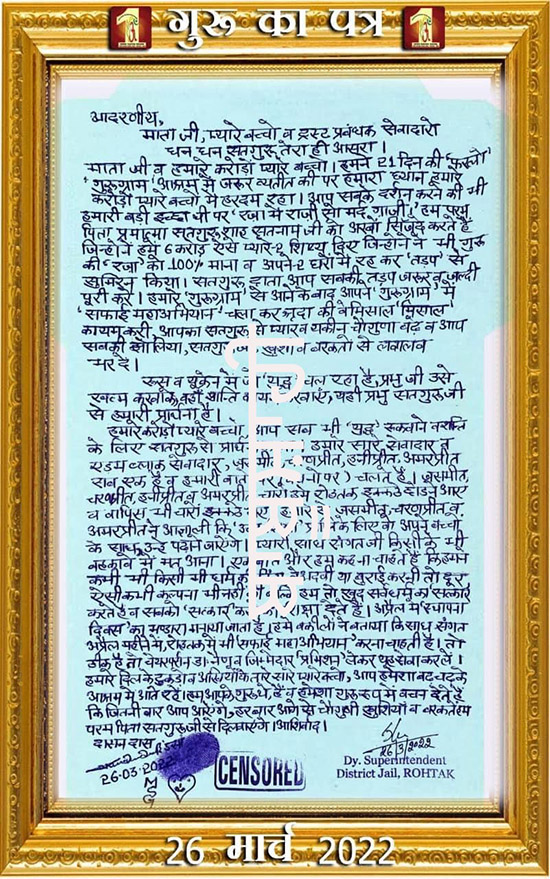 गुरु का पत्र
आदरणीय,
माता जी, प्यारे बच्चो व ट्रस्ट प्रबंधक सेवादारो
धन धन सतगुरु तेरा ही आसरा।
माता जी व हमारे करोड़ों प्यारे बच्चो। हमने 21 दिन की 'फरलो'
'गुरुग्राम' आश्रम में जरूर व्यतीत की पर हमारा ध्यान हमारे
करोड़ों प्यारे बच्चों में हरदम रहा। आप सबके दर्शन करने की भी
हमारी बड़ी इच्छा थी पर 'रजा में राजी सो मर्द गाजी'। हम
पिता परमात्मा सतगुरु शाह सतनाम जी को अरबों सिजदा करते हैं
जिन्होंने हमें 6 करोड़ ऐसे प्यारे-2 शिष्य दिए जिन्होंने भी गुरु
की 'रजा' को 100% माना व अपने-2 घरों में रह कर 'तड़प' से
सुमिरन किया। सतगुरु दाता आप सबकी तड़प जरूर व जल्दी
पूरी करें। हमारे 'गुरुग्राम' से आने के बाद आपने 'गुरुग्राम' में
'सफाई महाअभियान' चला कर श्रद्धा की बेमिसाल मिसाल
कायम करी, आपका सतगुरु से प्यार व यकीन सौगुणा बढ़े व आप
सबकी झोलियां, सतगुरु जी खुशी व बरकतों से लबालब
भर दें।
रूस व यूक्रेन में जो 'युद्ध' चल रहा है, प्रभु जी उसे
खत्म करवाके वहाँ शांति कायम करवाएं, यही प्रभु सतगुरु जी
से हमारी प्रार्थना है।
हमारे करोड़ों प्यारे बच्चो आप सब भी 'युद्ध' रुकवाने व शांति
के लिए सतगुरु से हमारे सारे सेवादार व
एडम ब्लॉक सेवादार, हनीप्रीत, अमरप्रीत
सब एक हैं व हमारी चलते हैं। जसमीत,
चरणप्रीत, हनीप्रीत व अमरप्रीत चारों रोहतक इक्कठे होकर आए
व वापिस भी चारों इक्कठे जसमीत, चरणप्रीत व
अमरप्रीत ने आज्ञा ली कि के लिए वो अपने बच्चों
के साथ उन्हें पढ़ाने जाएंगे। प्यारी साध संगत जी किसी के भी
बहकावे में मत आना। और हम कहना चाहते हैं कि हमने
कभी भी किसी भी धर्म की बेअदबी या बुराई करनी तो दूर
ऐसी कभी कल्पना भी नहीं की हम तो खुद सब धर्मों का सत्कार
करते हैं व सबको 'सत्कार' करने की शिक्षा देते हैं। अप्रैल में 'स्थापना
दिवस' का भण्डारा मनाया जाता है। हमें वकीलों ने बताया कि साध संगत
अप्रैल महीने में, रोहतक में भी 'सफाई महाअभियान' करना चाहती है। तो
ठीक है तो चेयरपर्सन व जिम्मेदार 'प्रमिशन' लेकर यह सेवा कर लें।
हमारे दिल के टुकड़ो व अँखियों के तारे सारे प्यारे बच्चो, आप हमेशा बढ़ चढ़के
आश्रम में आते रहें। हम आपके गुरु थे, हैं व हमेशा गुरु रूप में वचन देते हैं
कि जितनी बार आप आएंगे, हर बार आगे से चौगुणी खुशियां व बरकतें हम
परम पिता सतगुरु जी से दिलवाएंगे। आशीर्वाद।
दासन दास
26-03-2022
MSG
CENSORED
26/3/2022
Dy. Superintendent
District Jail, ROHTAK
26 मार्च 2022